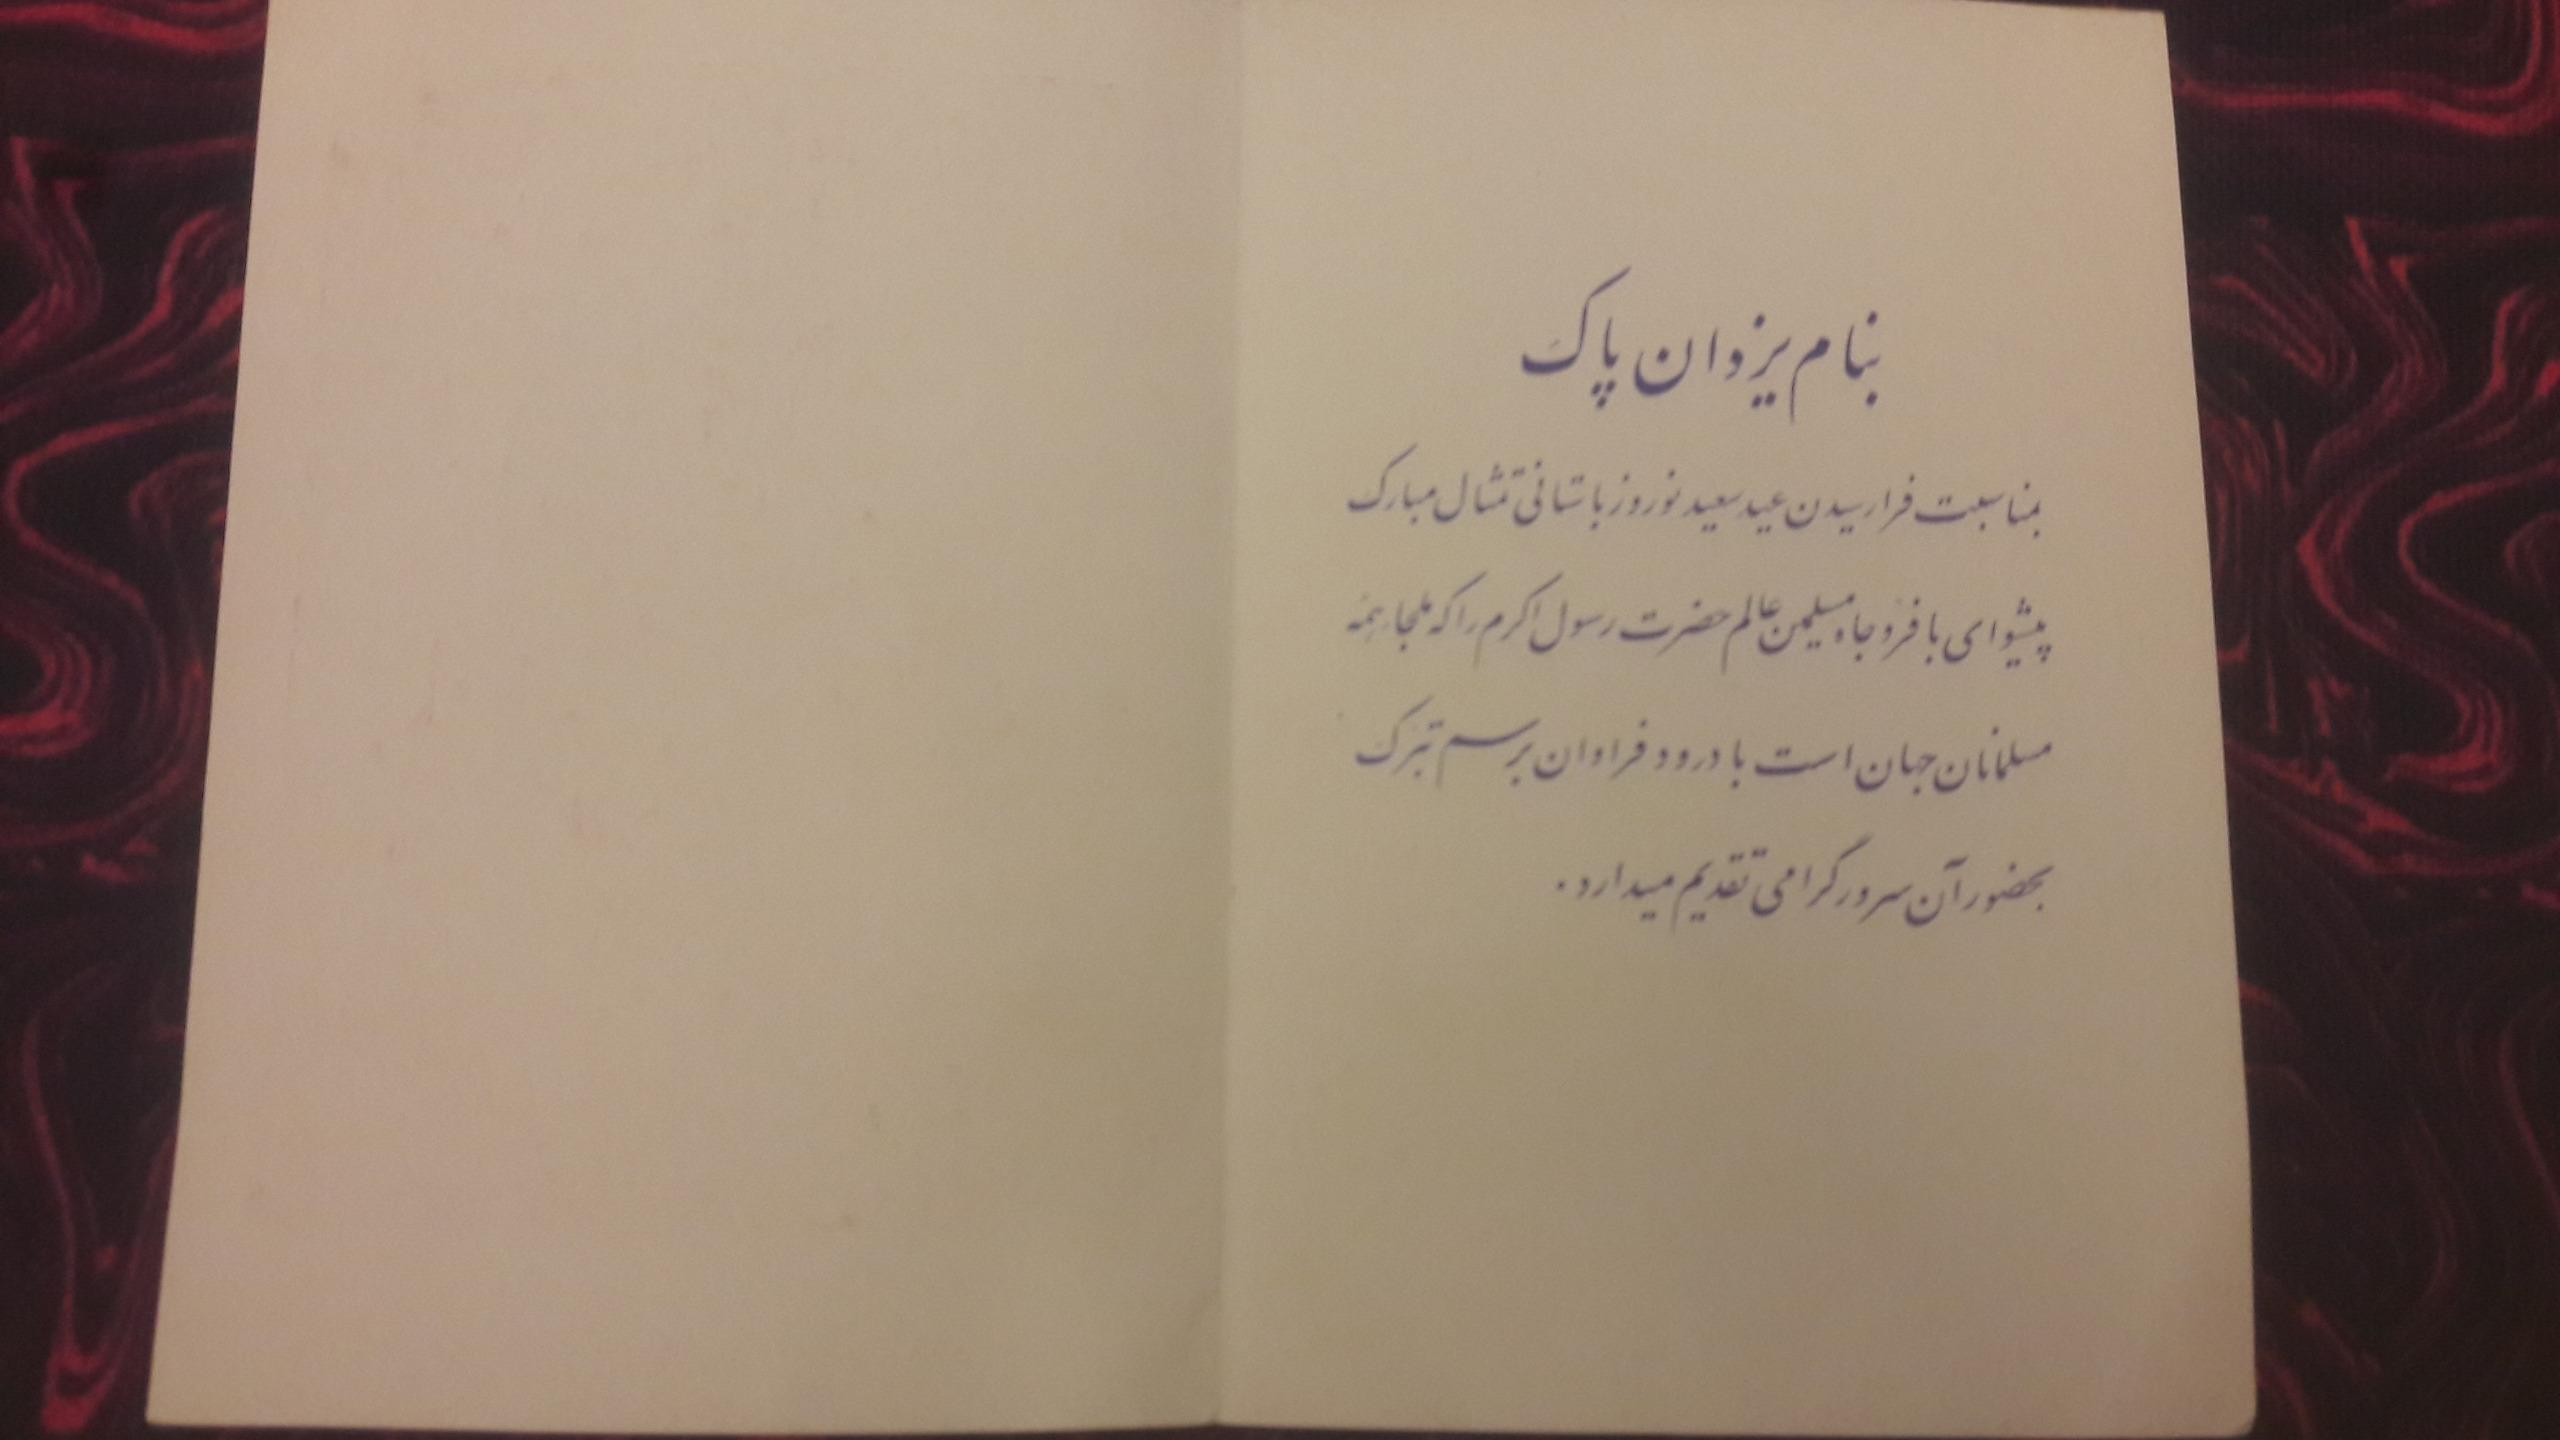 بنام یزدان پاک
بمناسبت فرارسیدن عید سعید نوروز باستانی تمثال مبارک
پیشوای با فرّ و جاه مسلمین عالم حضرت رسول اکرم را که ملجاء همه
مسلمانان جهان است با درود فراوان برسم تبرک
بحضور آن سرور گرامی تقدیم میدارد.